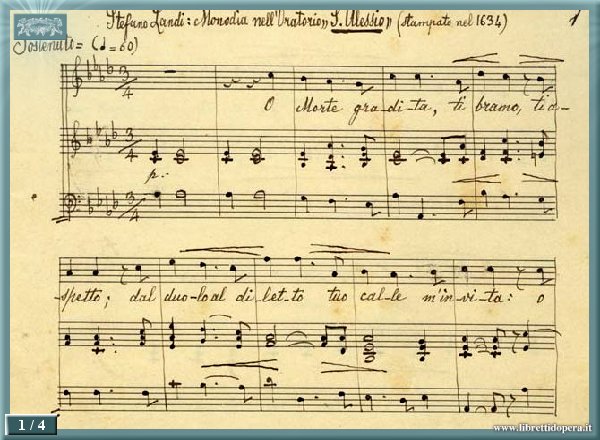 Stefano Landi: Monodia nell'Oratorio „S. Alessio„ (stampato nel 1634)
1
Sostenuto = (♩= 60)
O Morte gra-di-ta, ti bramo, ti a-
p.
spetto; dal duo-lo al di-let-to tuo cal-le m'in-vi-ta: O
1 / 4
www.librettidopera.it